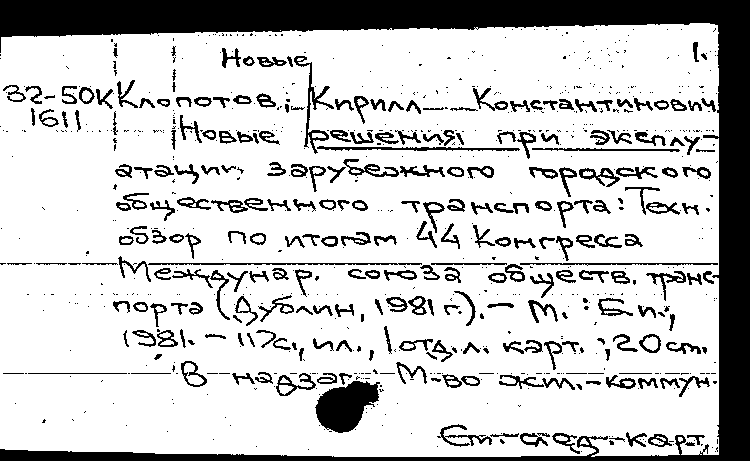 Новые 1.
32-50К Клопотов, Кирилл Константинович
1611 Новые решения при эксплу-
атации зарубежного городского
общественного транспорта: Техн.
обзор по итогам 44 Конгресса
Междунар. союза обществ. транс-
порта (Дублин, 1981 г.). – М. : Б.и.,
1981. – 117с., ил., 1 отд. л. карт. ; 20 см.
В надзаг.: М-во жил.-коммун.
См. след. карт.